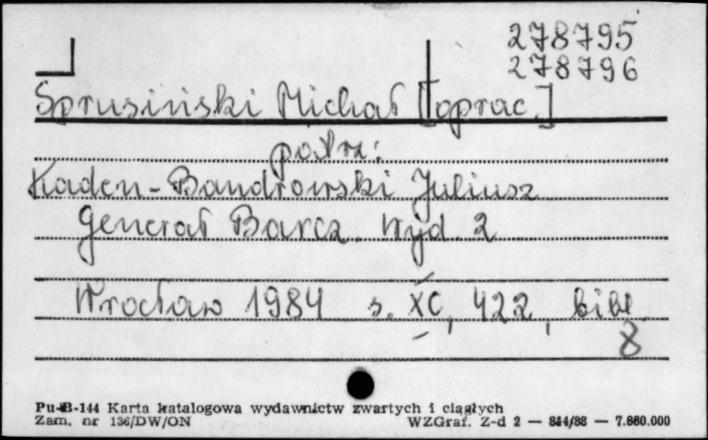 278795
278796
Sprusiński Michał [oprac.]
patrz:
Kaden-Bandrowski Juliusz
Generał Barcz. Wyd. 2
Wrocław 1984 s. XC, 422, bibl.
8
Pu-B-144 Karta katalogowa wydawnictw zwartych i ciągłych
Zam. nr 136/DW/ON WZGraf. Z-d 2 — 844/88 — 7.860.000